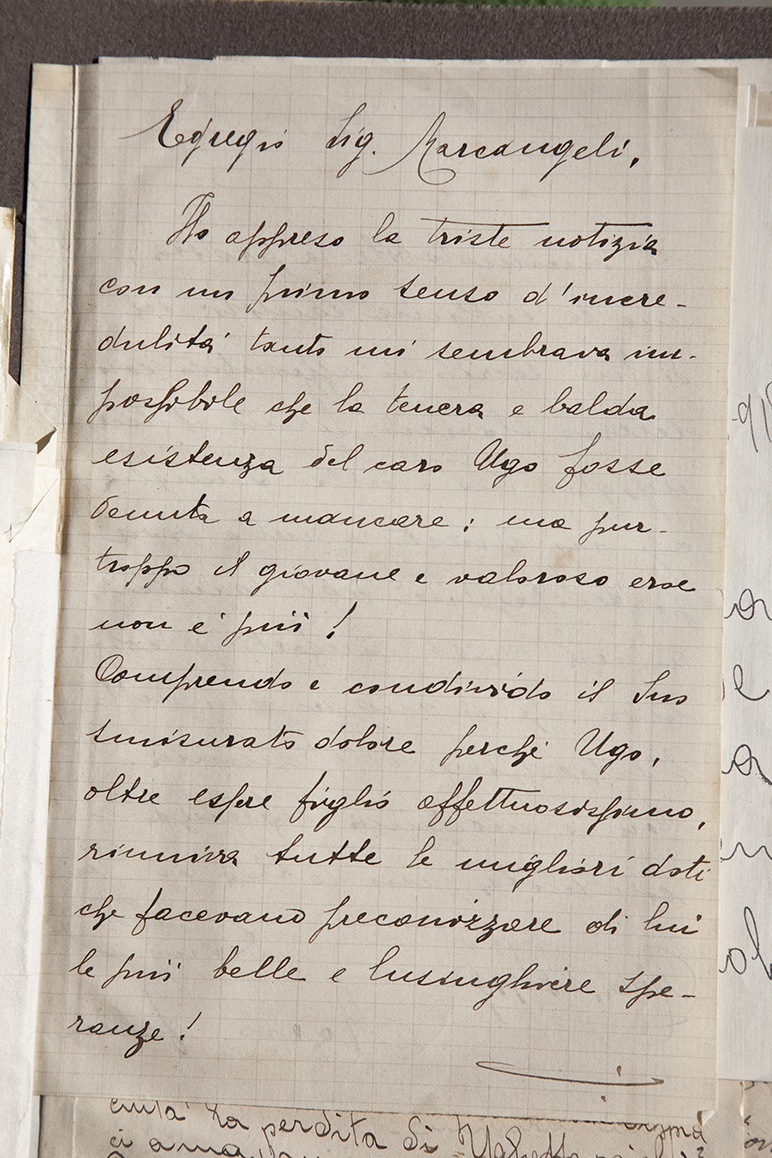 Egregio Sig. Marcangeli,
Ho appreso la triste notizia
con un primo senso d'incre-
dulità tanto mi sembrava im-
possibile che la tenera e balda
esistenza del caro Ugo fosse
venuta a mancare; ma pur-
troppo il giovane e valoroso eroe
non è più!
Comprendo e condivido il Suo
smisurato dolore perchè Ugo,
oltre essere figlio affettuosissimo,
riuniva tutte le migliori doti
che facevano preconizzare di lui
le più belle e lusinghiere spe-
ranze!
la perdita di